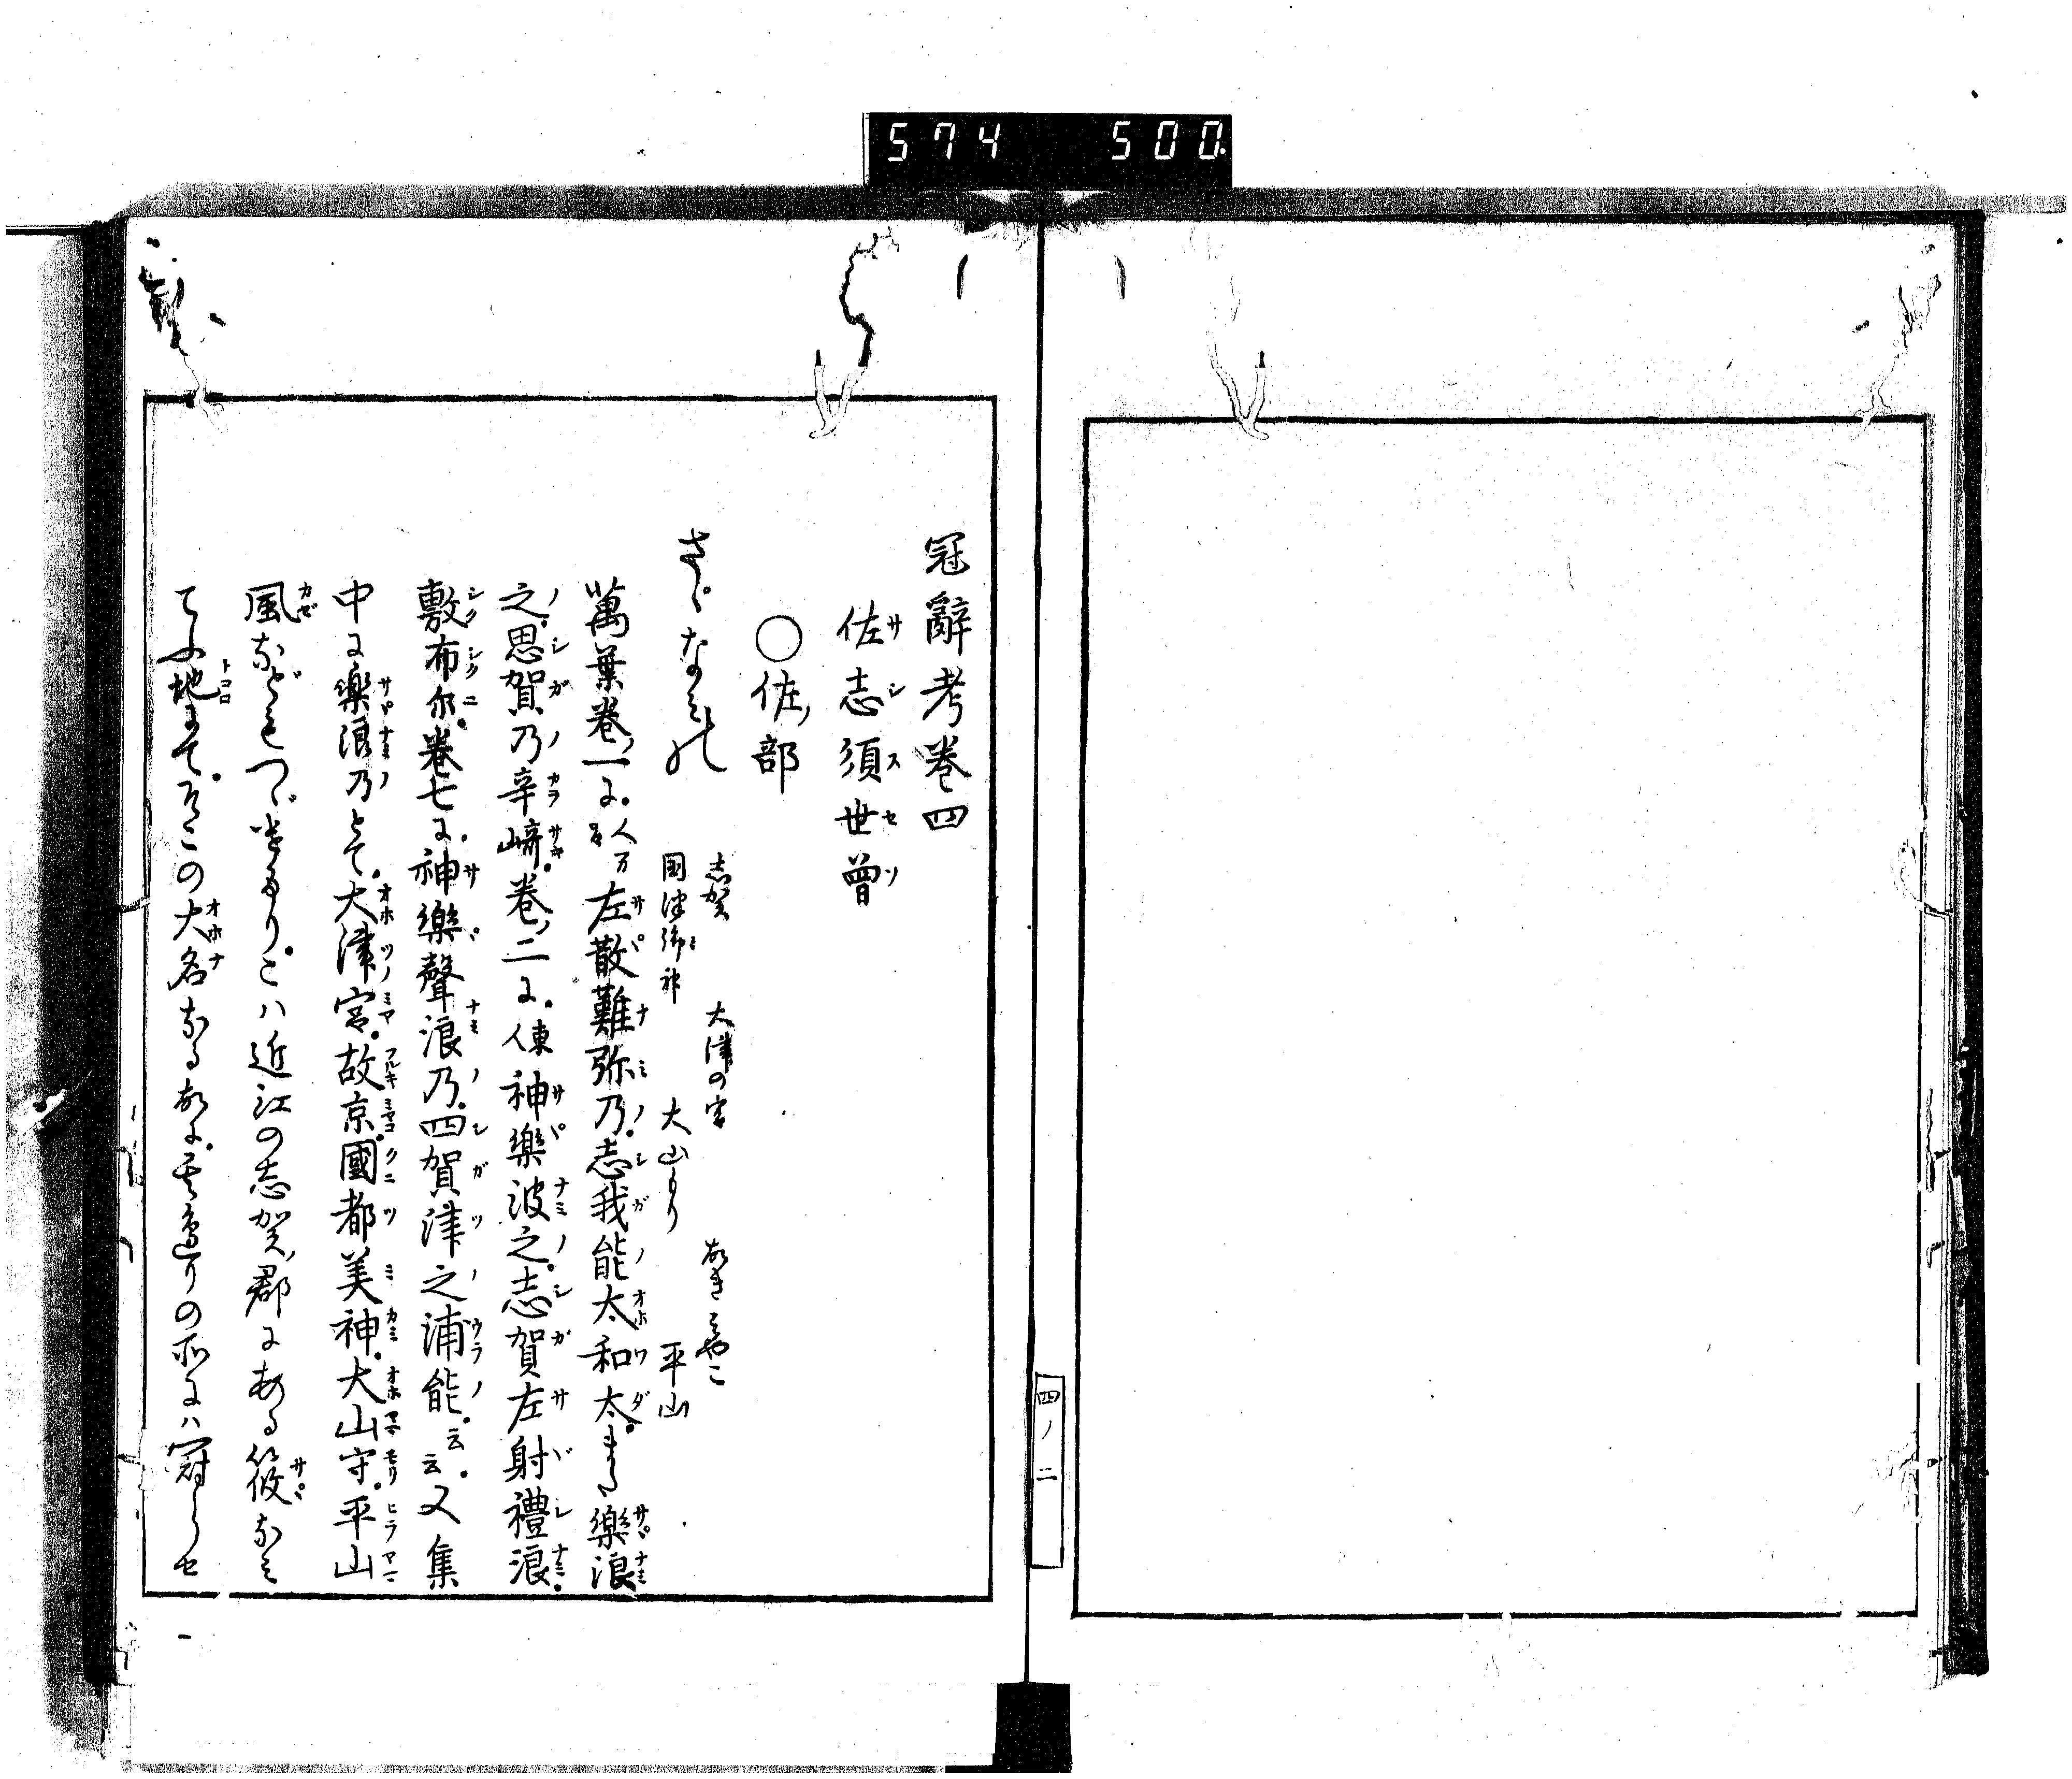 574 500
四ノ二
冠辭考巻四
佐志須世曾
○佐ノ部
さゝなみの
志賀 大津の宮 故きみやこ
国津御神 大山もり 平山
萬葉巻ノ一に。人万呂左散難弥乃。志我能太和太。また樂浪
之思賀乃辛﨑。巻ノ二に。人東神樂波之。志賀左射禮浪
敷布尓。巻七に。神樂聲浪乃。四賀津之浦能。云云。又集
中に樂浪乃とて。大津宮。故京。國都美神。大山守。平山
風などもつゞけたり。こハ近江の志賀ノ郡にある筱なみ
てふ地にて。そこの大名なる故に。其邊りの所にハ冠らせ